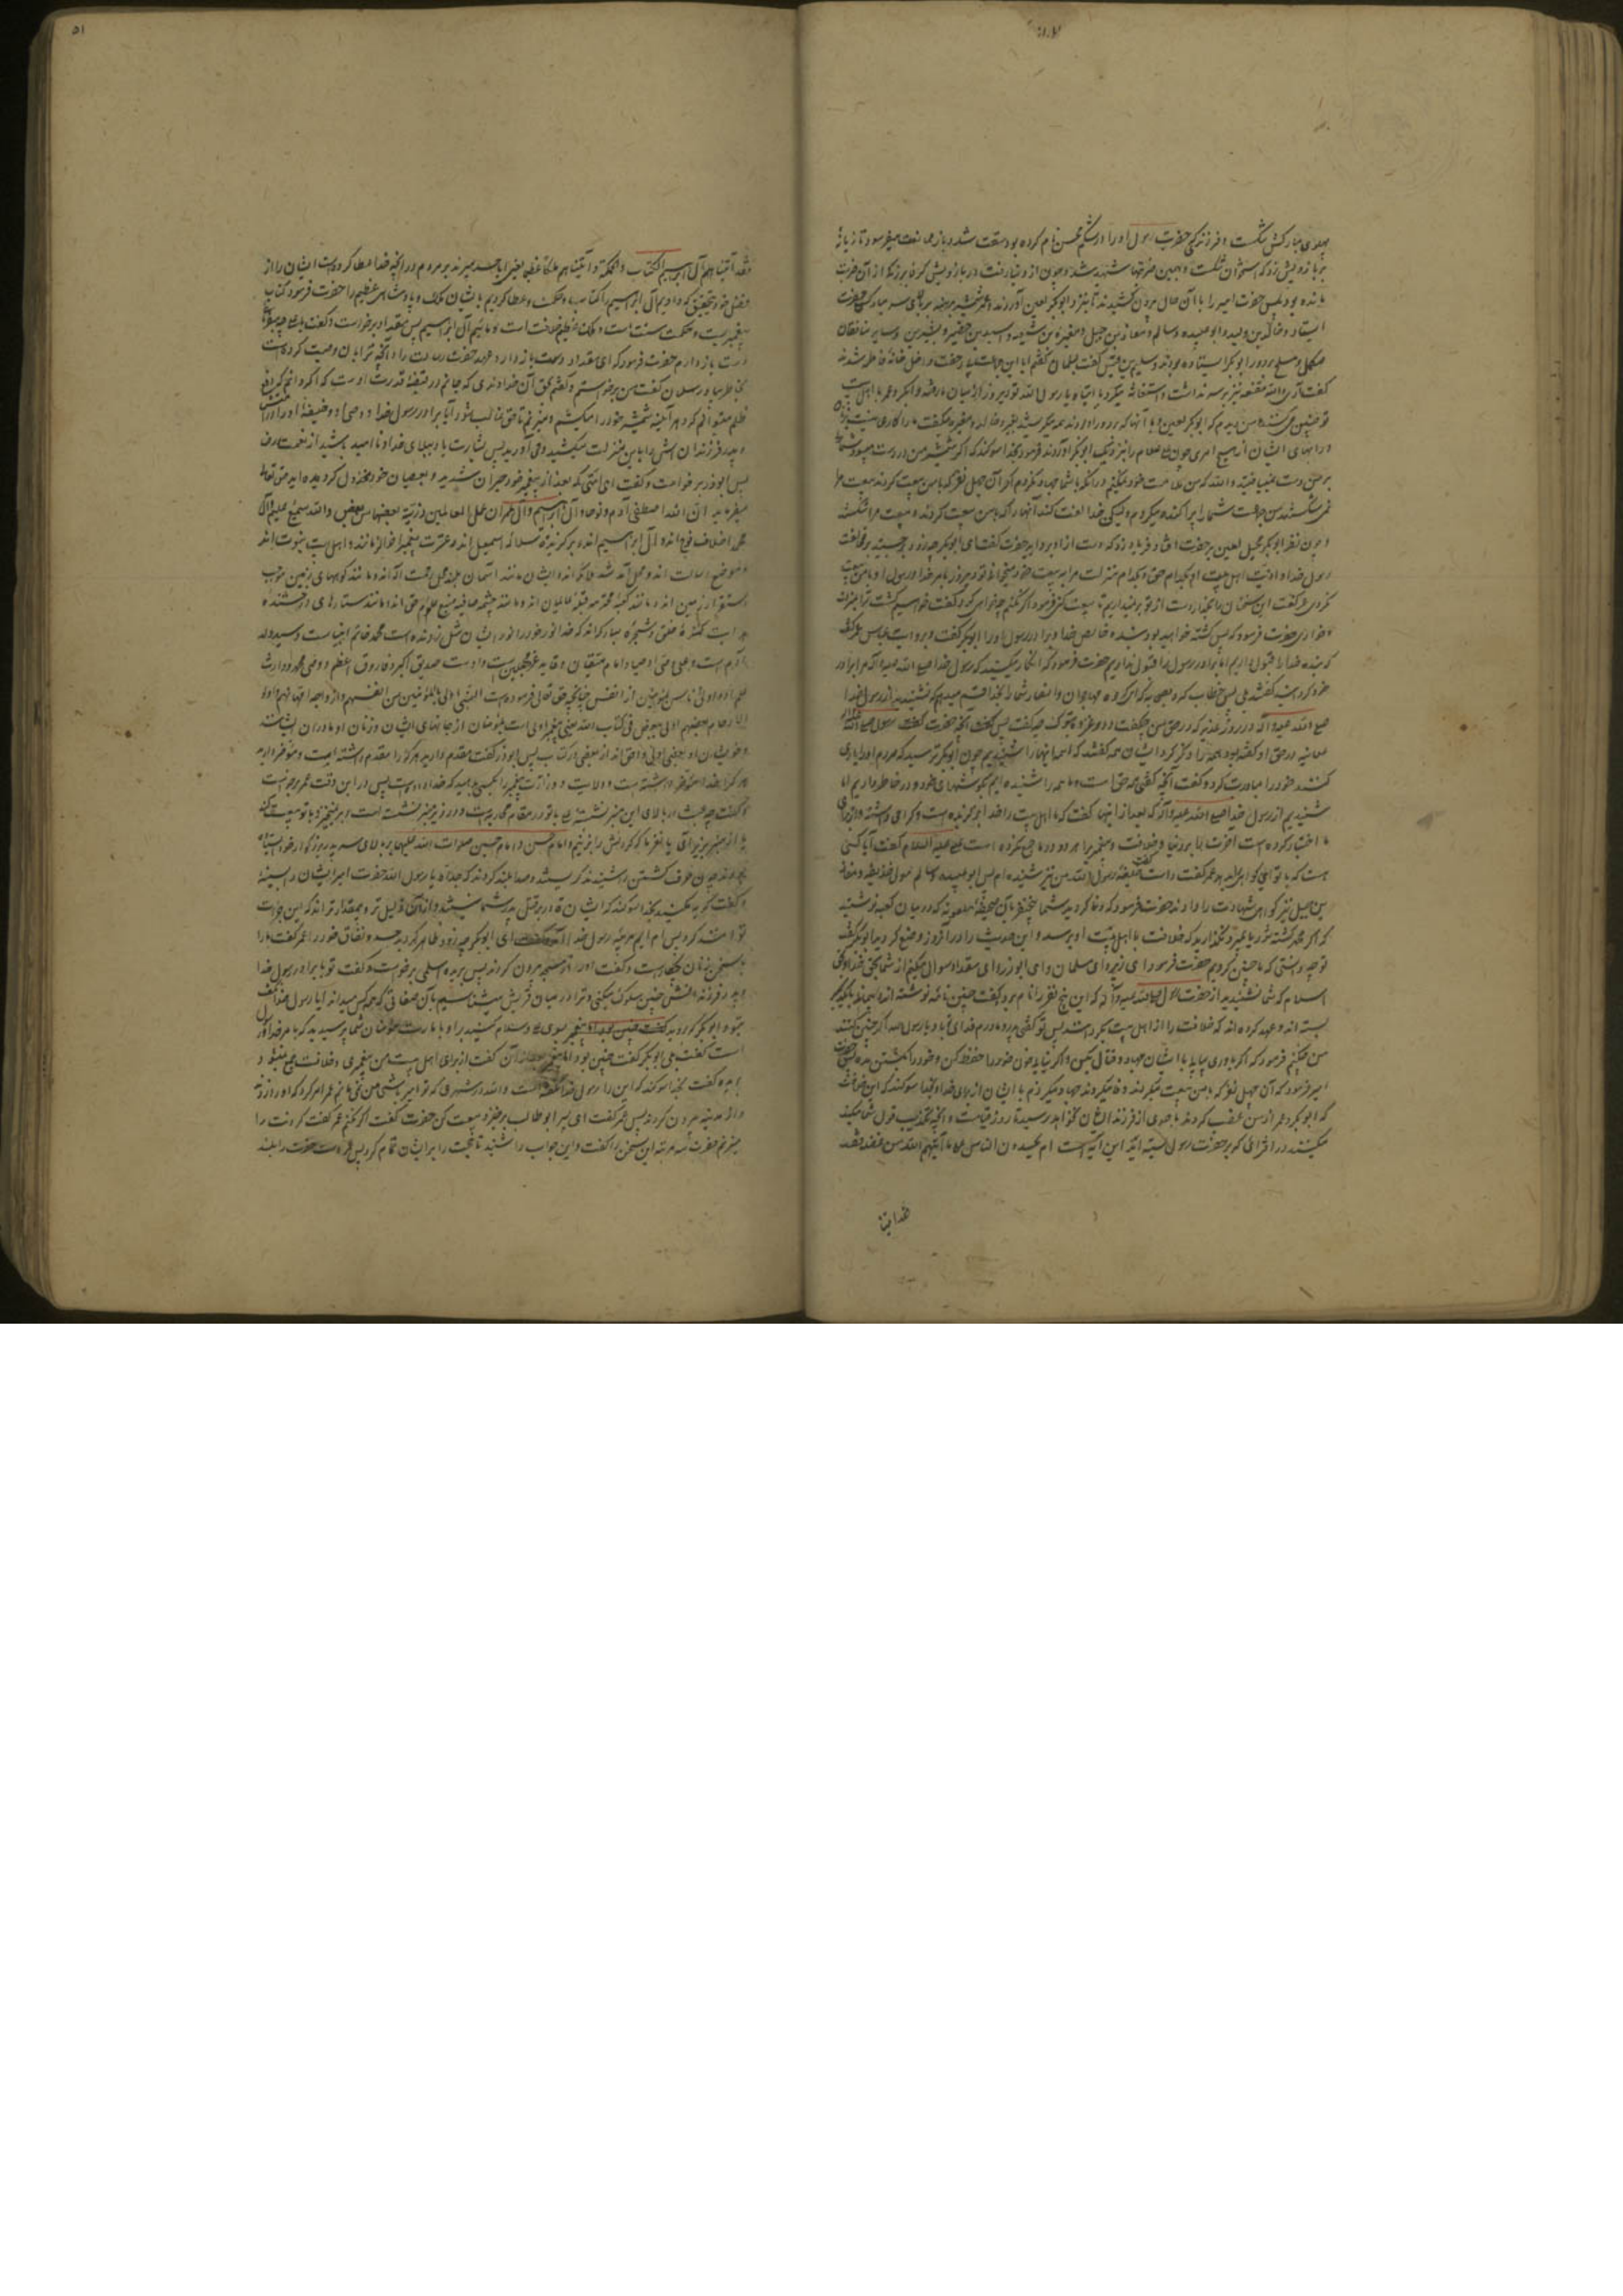 پهلوی مبارکش شکست و فرزندی که حضرت رسول او را در شکم محسن نام کرده بود سقط شد و باز ممانعت میفرمود تا تازیانه
بر بازویش زد که استخوان شکست و بهمین ضربتها شهید شد و چون از دنیا رفت در بازویش گرهی بود از آن ضربت
مانده بود پس حضرت امیر را با آن حال بیرون کشیدند تا بنزد ابوبکر لعین آوردند و عمر شمشیر برهنه بر بالای سر مبارک حضرت
ایستاد و خالد بن ولید و ابو عبیده و سالم و معاذ بن جبل و مغیرة بن شعبه و اسید بن حضیر و بشیر بن و سایر منافقان
مکمل و مسلح بر دور ابوبکر ایستاده بودند سلیم بن قیس گفت بسلمان گفتم ایا این جماعت بی رخصت داخل خانه فاطمه شدند
گفت آری والله مقنعه نیز بر سر نداشت و استغاثه میکرد یا ابتاه یا رسول الله تو دیروز از میان ما رفته و ابوبکر و عمر با اهل بیت
تو چنین میکنند من دیدم که ابوبکر لعین و با آنها که بر دور او بودند همه میگریستند بغیر و خالد و مغیره و میگفت ما را کاری نیست با زنان
و رایهای ایشان در هیچ امری چون علی علیه السلام را بنزدیک ابوبکر آوردند فرمود بخدا سوگند که اگر شمشیر من در دست میبود شما
بر من دست نمییافتید والله که من ملامت خود نمیکنم در آنکه با شما جهاد نکردم اگر آن چهل نفر که با من بیعت کردند بیعت مرا
نمی شکستند من جماعت شما را پراکنده میکردم و لیکن خدا لعنت کند آنها را که با من بیعت کردند و بیعت مرا شکستند
و چون نظر ابوبکر لعین بر حضرت افتاد فریاد زد که دست از او بردارید حضرت گفت ای ابوبکر چه زود برجستید بر مخالفت
رسول خدا و اذیت اهل بیت او بکدام حق و بکدام منزلت مرا به بیعت خود میخوانی تو دیروز بامر خدا و رسول او با من بیعت
نکردی و گفت این سخنان را بگذار دست از تو برنمیداریم تا بیعت کنی فرمود اگر نکنم چه خواهی کرد گفت خواهیم کشت ترا بمذلت
و خواری حضرت فرمود که پس کشته خواهید بود بنده خالص خدا و برادر رسول او را ابوبکر گفت و بروایت عباس عمر گفت
که بنده خدا را قبول داریم اما برادر رسول را قبول نداریم حضرت فرمود که انکار میکنید که رسول خدا صلی الله علیه و آله مرا برادر
خود گردانید گفتند بلی پس خطاب کرد بصحابه که ای گروه مهاجران و انصار شما را بخدا قسم میدهم که نشنیدید از رسول خدا
صلی الله علیه و آله در روز غدیر که در حق من چه گفت و در غزوه تبوک چه گفت پس گفت آنچه حضرت گفت رسول صلی الله
علانیه در حق او گفته بود همه را ذکر کرد ایشان همه گفتند که اینها را شنیدیم چون ابوبکر ترسید که مردم او را یاری
کنند خود را مبادرت کرد و گفت آنچه گفتی همه حق است و ما همه را شنیده ایم بگوشهای خود و در خاطر داریم اما
شنیدم از رسول خدا صلی الله علیه و آله که بعد از اینها گفت که ما اهل بیت را خدا برگزیده است و گرامی داشته و از برای
ما اختیار کرده است آخرت را بر دنیا و خلافت و پیغمبری را هر دو در ما جمع نکرده است علی علیه السلام گفت آیا کسی
هست که با تو این گواهی بدهد عمر گفت راست گفت خلیفه رسول الله من نیز شنیده ام پس ابو عبیده و سالم مولی حذیفه و معاذ
بن جبل نیز گواهی شهادت را دادند حضرت فرمود که وفا کردید شما پنج نفر بآن صحیفه ملعونه که در میان کعبه نوشتید
که اگر محمد کشته شود یا بمیرد نگذارید که خلافت باهل بیت او برسد و این حدیث را در آنروز وضع کردید ابوبکر گفت
تو چه دانستی که ما چنین کردیم حضرت فرمود ای زبیر و ای سلمان و ای ابوذر و ای مقداد سوال میکنم از شما بحق خدا و حق
اسلام که شما نشنیدید از حضرت رسول صلی الله علیه و آله که این پنج نفر را نام برد و گفت چنین نامه نوشته اند و پیمان با یکدیگر
بسته اند و عهد کرده اند که خلافت را از اهل بیت بگردانند پس تو گفتی پدر و مادرم فدای تو باد یا رسول الله اگر چنین کنند
من چکنم فرمود که اگر یاوری بیابی با ایشان جهاد و قتال بکن و اگر نیابی خون خود را حفظ کن و خود را بکشتن مده پس حضرت
امیر فرمود که آن چهل نفر که با من بیعت میکردند وفا میکردند جهاد میکردم با ایشان از برای خدا و بخدا سوگند که این خلافت
که ابوبکر و عمر از من غصب کردند باحدی از فرزندان ایشان نخواهد رسید تا روز قیامت و آنچه تکذیب قول شما میکند
میکنند در افترائی که بر حضرت رسول بسته اید این آیه است ام یحسدون الناس علی ما آتیهم الله من فضله فقد
فقد آتینا
۵۱
فقد آتینا آل ابرهیم الکتاب و الحکمة و آتیناهم ملکا عظیما یعنی ایا حسد میبرند بر مردم در آنچه خدا عطا کرده است ایشان را از
فضل خود بتحقیق که دادیم آل ابراهیم را کتاب و حکمت و عطا کردیم بایشان ملک و پادشاهی عظیم را حضرت فرمود کتاب
پیغمبریست و حکمت سنت است و ملک عظیم خلافت است و مائیم آل ابراهیم پس مقداد برخواست و گفت یا علی چه میفرمائی
دست باز دارم حضرت فرمود که ای مقداد دست باز دار و عهد حضرت رسالت را و آنچه ترا بان وصیت کرده است
بخاطر بیاور سلمان گفت من برخواستم و گفتم بحق آن خداوندی که جانم در قبضه قدرت اوست که اگر دانم که دفع
ظلم میتوانم کرد هر آینه شمشیر خود را میکشم و میزنم تا حق غالب شود آیا برادر رسول خدا و وصی او و خلیفه او در امت او
و پدر فرزندان امتش را باین منزلت میکشید و می آورید پس بشارت باد ببلای خدا و ناامید باشید از نعمت و رفاه
پس ابوذر برخواست و گفت ای امتی که بعد از پیغمبر خود حیران شدید و بعصیان خود مخذول گردیده اید حق تعالی
میفرماید ان الله اصطفی آدم و نوحا و آل ابرهیم و آل عمران علی العالمین ذریة بعضها من بعض والله سمیع علیم آل
محمد اخلاف نوح اند و آل ابراهیم اند و برگزیده سلاله اسمعیل اند و عترت پیغمبر آخرالزمانند و اهل بیت نبوت اند
و موضع رسالت اند و محل آمد شد ملائکه اند و ایشان مانند آسمان بلند محل رحمت اند و مانند کوههای زمین موجب
استقرار زمین اند و مانند کعبه محترمه قبله عالمیان اند و مانند چشمه صافیه منبع علوم حق اند و مانند ستارهای درخشنده
هدایت کننده خلق و شجره مبارکه اند که خدا نور خود را بنور ایشان مثل زده است محمد خاتم انبیاست و سید ولد
آدم است و علی وصی اوصیا و امام متقیان و قاید غر محجلین است و اوست صدیق اکبر و فاروق اعظم و وصی محمد و وارث
علم او و اولی ناس بمؤمنین از انفس چنانچه حق تعالی فرموده است النبی اولی بالمؤمنین من انفسهم و ازواجه امهاتهم و اولو
الارحام بعضهم اولی ببعض فی کتاب الله یعنی پیغمبر اولی است بمؤمنان از جانهای ایشان و زنان او مادران ایشانند
و خویشان او بعضی اولی و احق اند از بعضی در کتاب پس ابوذر گفت مقدم دارید هر که را خدا مقدم داشته است و مؤخر دارید
هر که را خدا مؤخر داشته است و ولایت و وزارت پیغمبر را بکسی دهید که خدا داده است پس در این وقت عمر برخواست
و گفت چه بالای این منبر نشسته و علی با تو در مقام محاربه است و در زیر منبر نشسته است و برنمیخیزد با تو بیعت کند
یا از منبر بزیر آی یا بفرما که گردنش را بزنیم و امام حسن و امام حسین صلوات الله علیهما بر بالای سر پدر بزرگوار خود ایستاده
بودند چون حرف کشتن را شنیدند گریستند و صدا بلند کردند که یا جداه یا رسول الله حضرت امیر ایشان را بسینه
و گفت گریه مکنید بخدا سوگند که ایشان قادر بر قتل پدر شما نیستند و از آن ذلیل تر و بیمقدار تر اند که این جرأت
توانند کرد پس ام ایمن مربیه رسول خدا آمد گفت ای ابوبکر چه زود ظاهر کردید حسد و نفاق خود را عمر گفت ما را
بسخن زنان چکار است و گفت او را از مسجد بیرون کردند پس بریده اسلمی برخواست و گفت تو با برادر رسول خدا
و پدر فرزندانش چنین سلوک میکنی و ترا در میان قریش میشناسیم بآن صفاتی که همه کس میداند ایا رسول خدا نگفت
بتو و ابوبکر که بروید بسوی علی و سلام کنید بر او بامارت مؤمنان شما پرسیدید که بامر خدا و رسول
است گفت بلی ابوبکر گفت چنین بود اما پیغمبر بعد از آن گفت از برای اهل بیت من پیغمبری و خلافت جمع نمیشود
بریده گفت بخدا سوگند که این را رسول خدا نگفته است والله در شهری که تو امیر باشی من نمی مانم عمر امر کرد که او را زدند
و از مدینه بیرون کردند پس عمر گفت ای پسر ابو طالب برخیز و بیعت کن حضرت گفت اگر نکنم عمر گفت گردنت را
میزنم حضرت سه مرتبه این سخن را گفت و این جواب را شنید تا حجت را بر ایشان تمام کرد پس دست حضرت را بلند